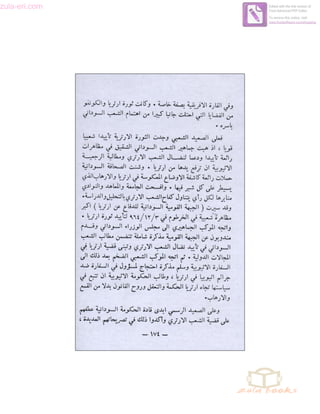 zula-eri.com
وفي القارة الافريقية بصفة خاصة ٠ وكانت ثورة ارتريا والكونغو
من القضايا التي احتلت جانبا كبيرا من اهتمام الشعب السوداني
بأسره ٠
فعلى الصعيد الشعبي وجدت الثورة الارترية تأييدا شعبيا
قويا ، اذ هبت جماهير الشعب السوداني الشقيق في مظاهرات
رائعة تأييدا ودعما لنضال الشعب الارتري ومطالبة الرجعية
الاثيوبية ان ترفع يدها من ارتريا ٠ وشنت الصحافة السودانية
حملات رائعة كاشفة الاوضاع المعكوسة في ارتريا والارهاب الذي
يسيطر على كل شبر فيها ٠ وافسحت الجامعة والمعاهد والنوادي
منابرها لكل رأي يتناول كفاح الشعب الارتري بالتحليل والدراسة٠
وقد سيرت ( الجبهة القومية السودانية للدفاع عن ارتريا ) اكبر
مظاهرة شعبية في الخرطوم في ٩٦٤/١٢/٣ لتأييد ثورة ارتريا ٠
واتجه الموكب الجماهيري الى مجلس الوزراء السوداني وقدم
مندوبون عن الجبهة القومية مذكرة شاملة تتضمن مطالب الشعب
السوداني في تأييد نضال الشعب الارتري وتبني قضية ارتريا في
المجالات الدولية ٠ ثم اتجه الموكب الشعبي الضخم بعد ذلك الى
السفارة الاثيوبية وسلم مذكرة احتجاج لمسؤول في السفارة ضد
جرائم اثيوبيا في ارتريا ، وطالب الحكومة الاثيوبية ان تتبع في
سياستها تجاه ارتريا الحكمة والتعقل وروح القانون بدلا من القمع
والارهاب٠
وعلى الصعيد الرسمي ابدى قادة الحكومة السودانية عطفهم
على قضية الشعب الارتري وأكدوا ذلك في تصريحاتهم العديدة ،
— ١٧٤ —
zula books